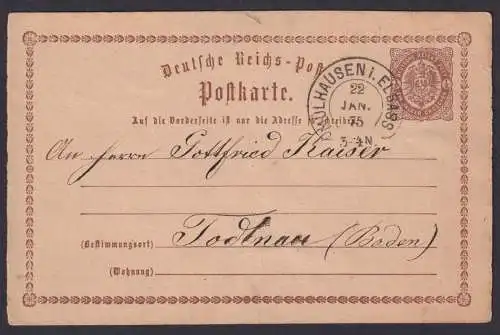 Deutsche Reichs-Post
Postkarte.
MÜLHAUSEN i. ELSASS
22
JAN.
75
3-4N.
Auf die Vorderseite ist nur die Adresse zu schreiben
An Herrn Gottfried Kaiser
(Bestimmungsort) Todtnau (Baden)
(Wohnung)